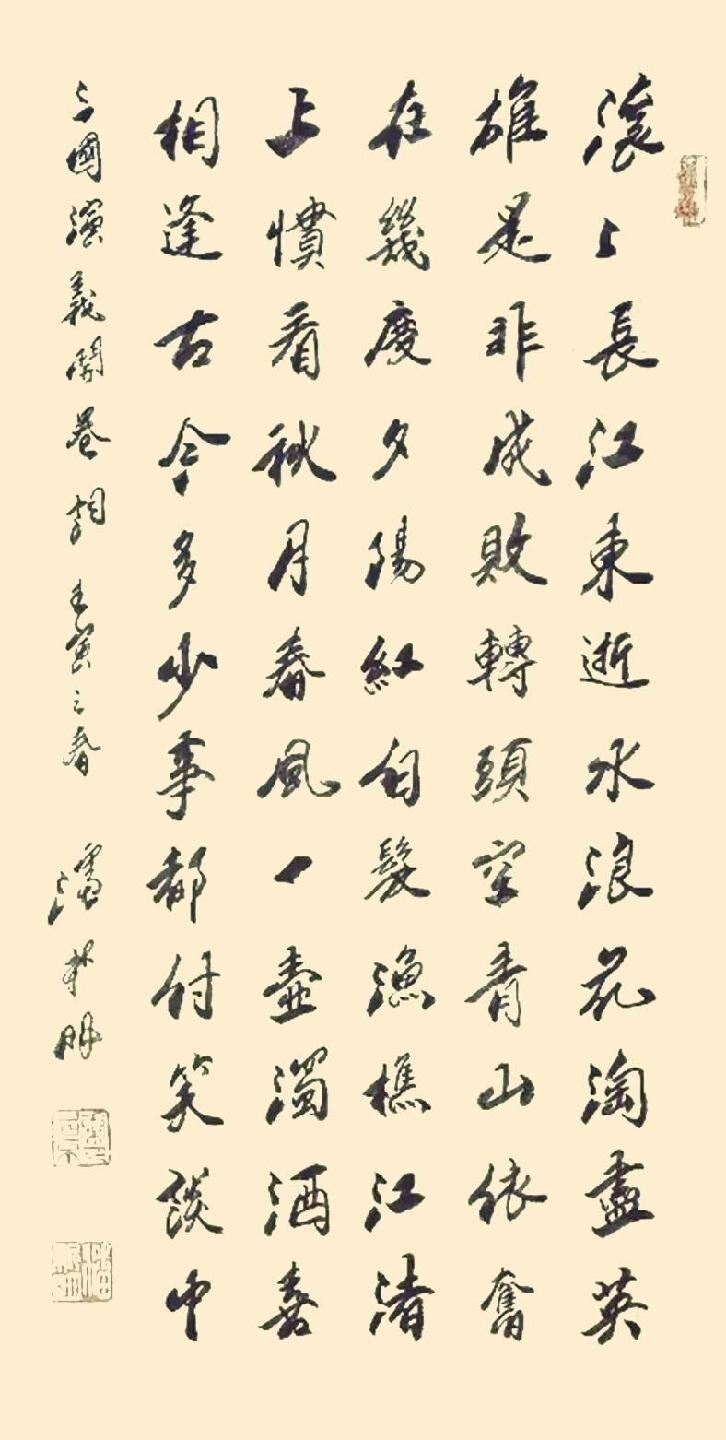 滚々長江東逝水浪花淘盡英
雄是非成敗轉頭空青山依奮
在幾度夕陽紅白髮漁樵江渚
上慣看秋月春風一壺濁酒喜
相逢古今多少事都付笑談中
三國演義開卷詞 壬寅之春 潘 明